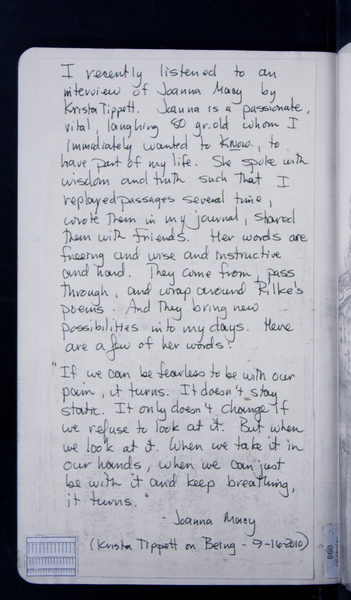 I recently listened to an
interview of Joanna Macy by
Krista Tippett. Joanna is a passionate,
vital, laughing 80 yr. old whom I
immediately wanted to know, to
have part of my life. She spoke with
wisdom and truth such that I
replayed passages several time,
wrote them in my journal, shared
them with friends. Her words are
freeing and wise and instructive
and hard. They come from, pass
through, and wrap around Rilke's
poems. And they bring new
possibilities into my days. Here
are a few of her words:
"If we can be fearless to be with our
pain, it turns. It doesn't stay
static. It only doesn't change if
we refuse to look at it. But when
we look at it. When we take it in
our hands, when we can just
be with it and keep breathing,
it turns."
- Joanna Macy
(Krista Tippett on Being - 9-16-2010)